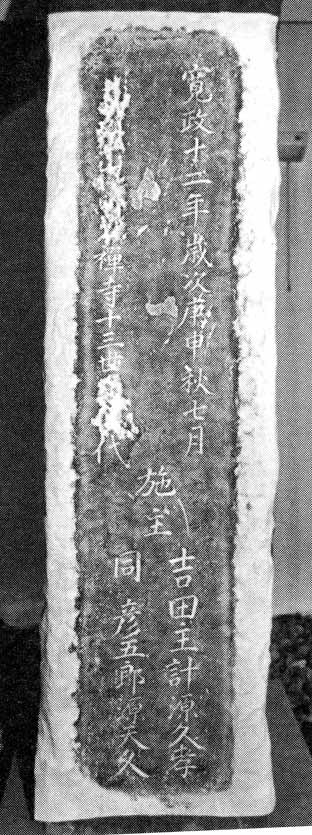 寛政十二年歳次庚申秋七月
禅寺十三世
代
施主
吉田主計源久孝
同 彦五郎源天久